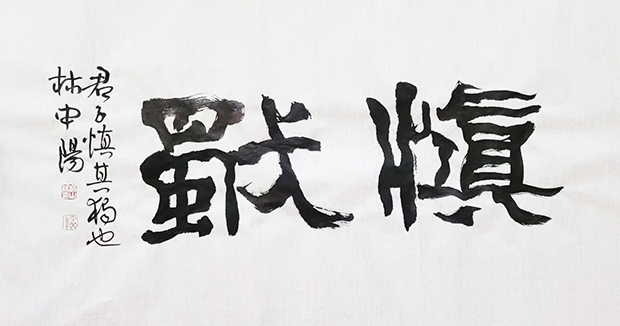 慎獨
君子慎其独也
林中陽